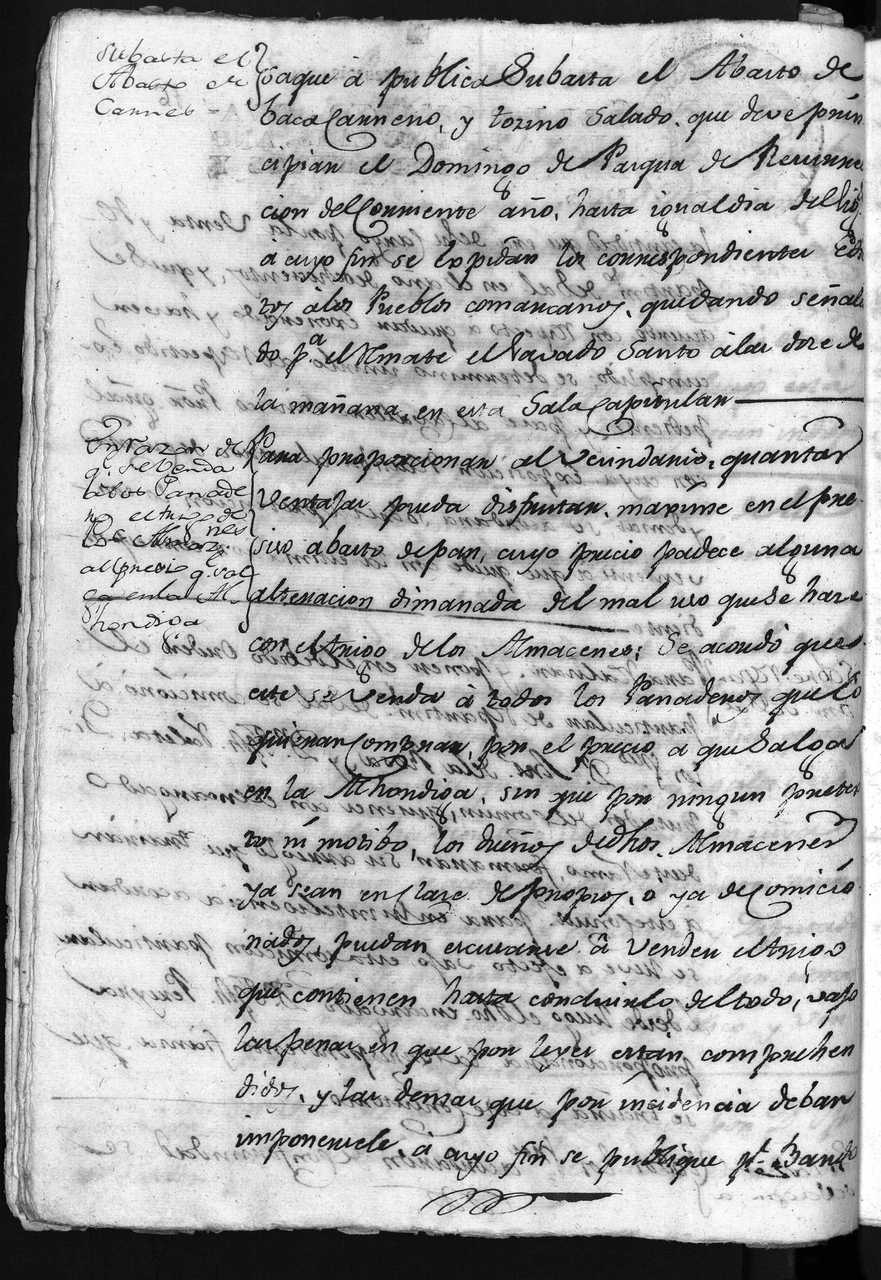 subasta el
Abasto de
Carnes -
saque à publica Subasta el Abasto de
baca Carnero, y tozino Salado. que deve prin
cipiar el Domingo de Pasqua de Resurrec
cion del Corriente año, hasta igual dia del
à cuyo fin se expidan los correspondientes Edi
tos álos Pueblos comarcanos, quedando señala
do p.a el Rmate el Savado Santo álas doze de
la mañana, en esta Sala Capitular
En razon de
q. se venda
a los Panade
el trigo de
los Almaz.nes
al precio q. sal
ga en la Al
hondiga
Para proporcionar al Vecindario, quantas
Ventajas pueda disfrutar, maxime en el pre-
siso abasto de pan, cuyo precio padece alguna
alteracion dimanada del mal uso que se haze
con el trigo delos Almacenes; Se acordó que
este se Venda à todos los Panaderos que lo
quieran Comprar, por el precio à que Salga
en la Alhondiga, sin que por ningun pretex
to ni motibo, los dueños de dhos. Almacenes
ya sean en Clase de propios, o ya de Comicio
nados, puedan escusarse à Vender el trigo
que contienen hasta concluirlo del todo, vajo
las penas en que por leyes están comprehen
didos, y las demas que por incidencia deban
imponersele, à cuyo fin se publique p.r Bando